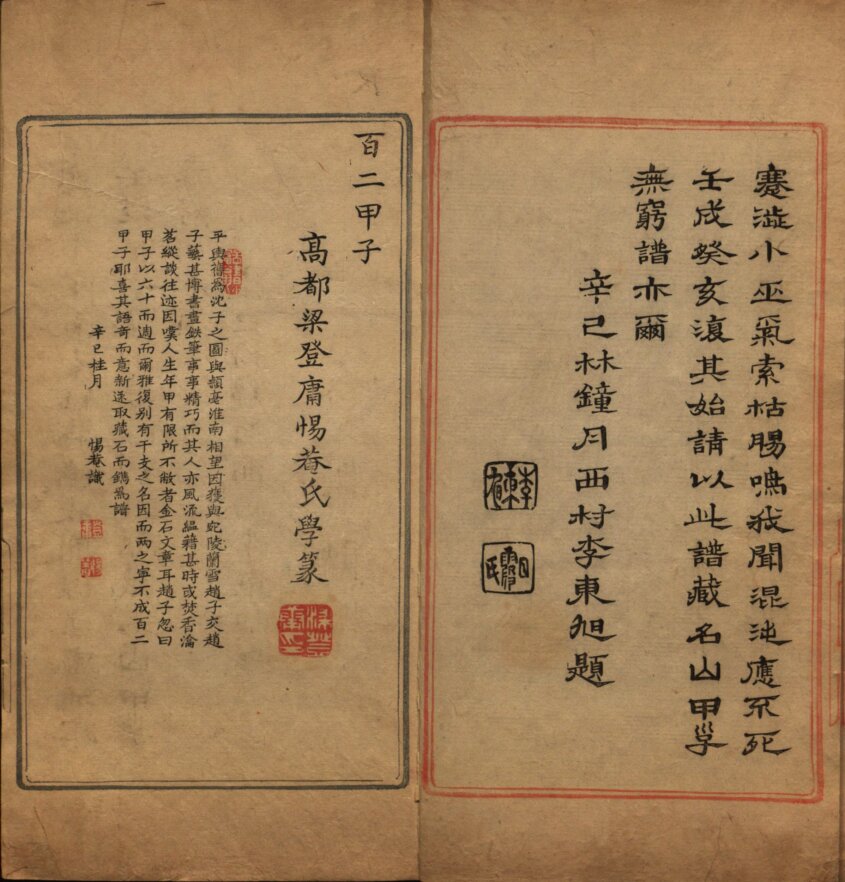 蹇澁小巫氣索枯腸嗚我聞混沌應不死
壬戌癸亥復其始請以此譜藏名山甲孚
無窮譜亦爾
辛已林鐘月西村李東旭題
李東
百二甲子
高都梁登庸惕菴氏學篆
平輿得爲沈子之國與頓亳淮南相望因獲與宛陵蘭雪趙子交趙
子藝甚博書畫鉄筆事事精巧而其人亦風流緼藉甚時或焚香瀹
茗縱談往迹因嘆人生年甲有限所不敝者金石文章耳趙子忽曰
甲子以六十而週而爾雅復別有干支之名因而兩之寧不成百二
甲子耶喜其語奇而意新遂取藏石而鐫爲譜
辛已桂月 惕菴識